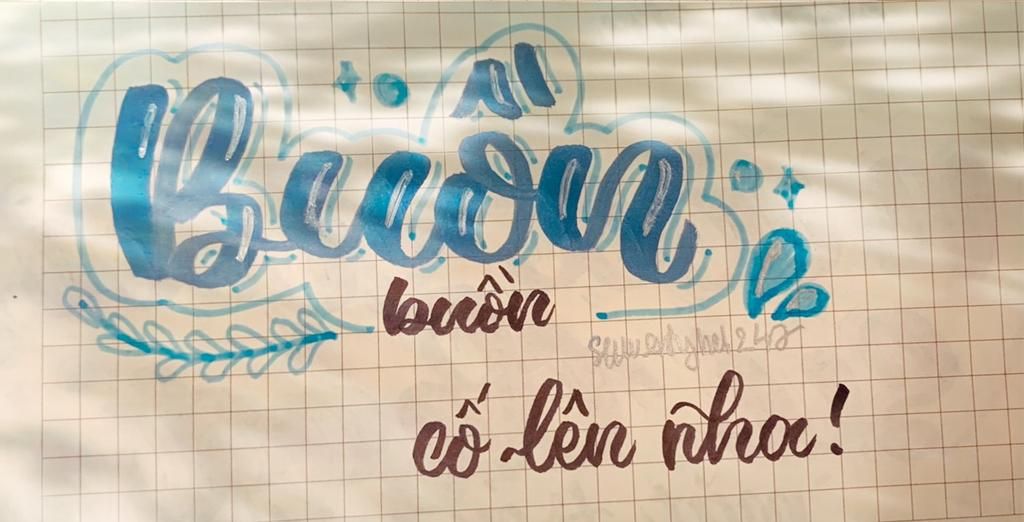 Buồn
buồn
cố lên nha!